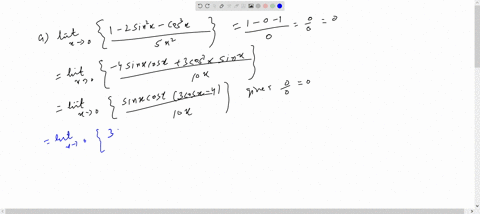 a) lit x→0 { 1 - 2 sin²x - cos³x / 5x² } = 1-0-1 / 0 = 0/0 = 0
= lit x→0 { -4 sinx cosx + 3 cos²x sinx / 10x }
= lit x→0 { sinx cosx (3cosx - 4) / 10x } gives 0/0 = 0
= lit x→0 { 3